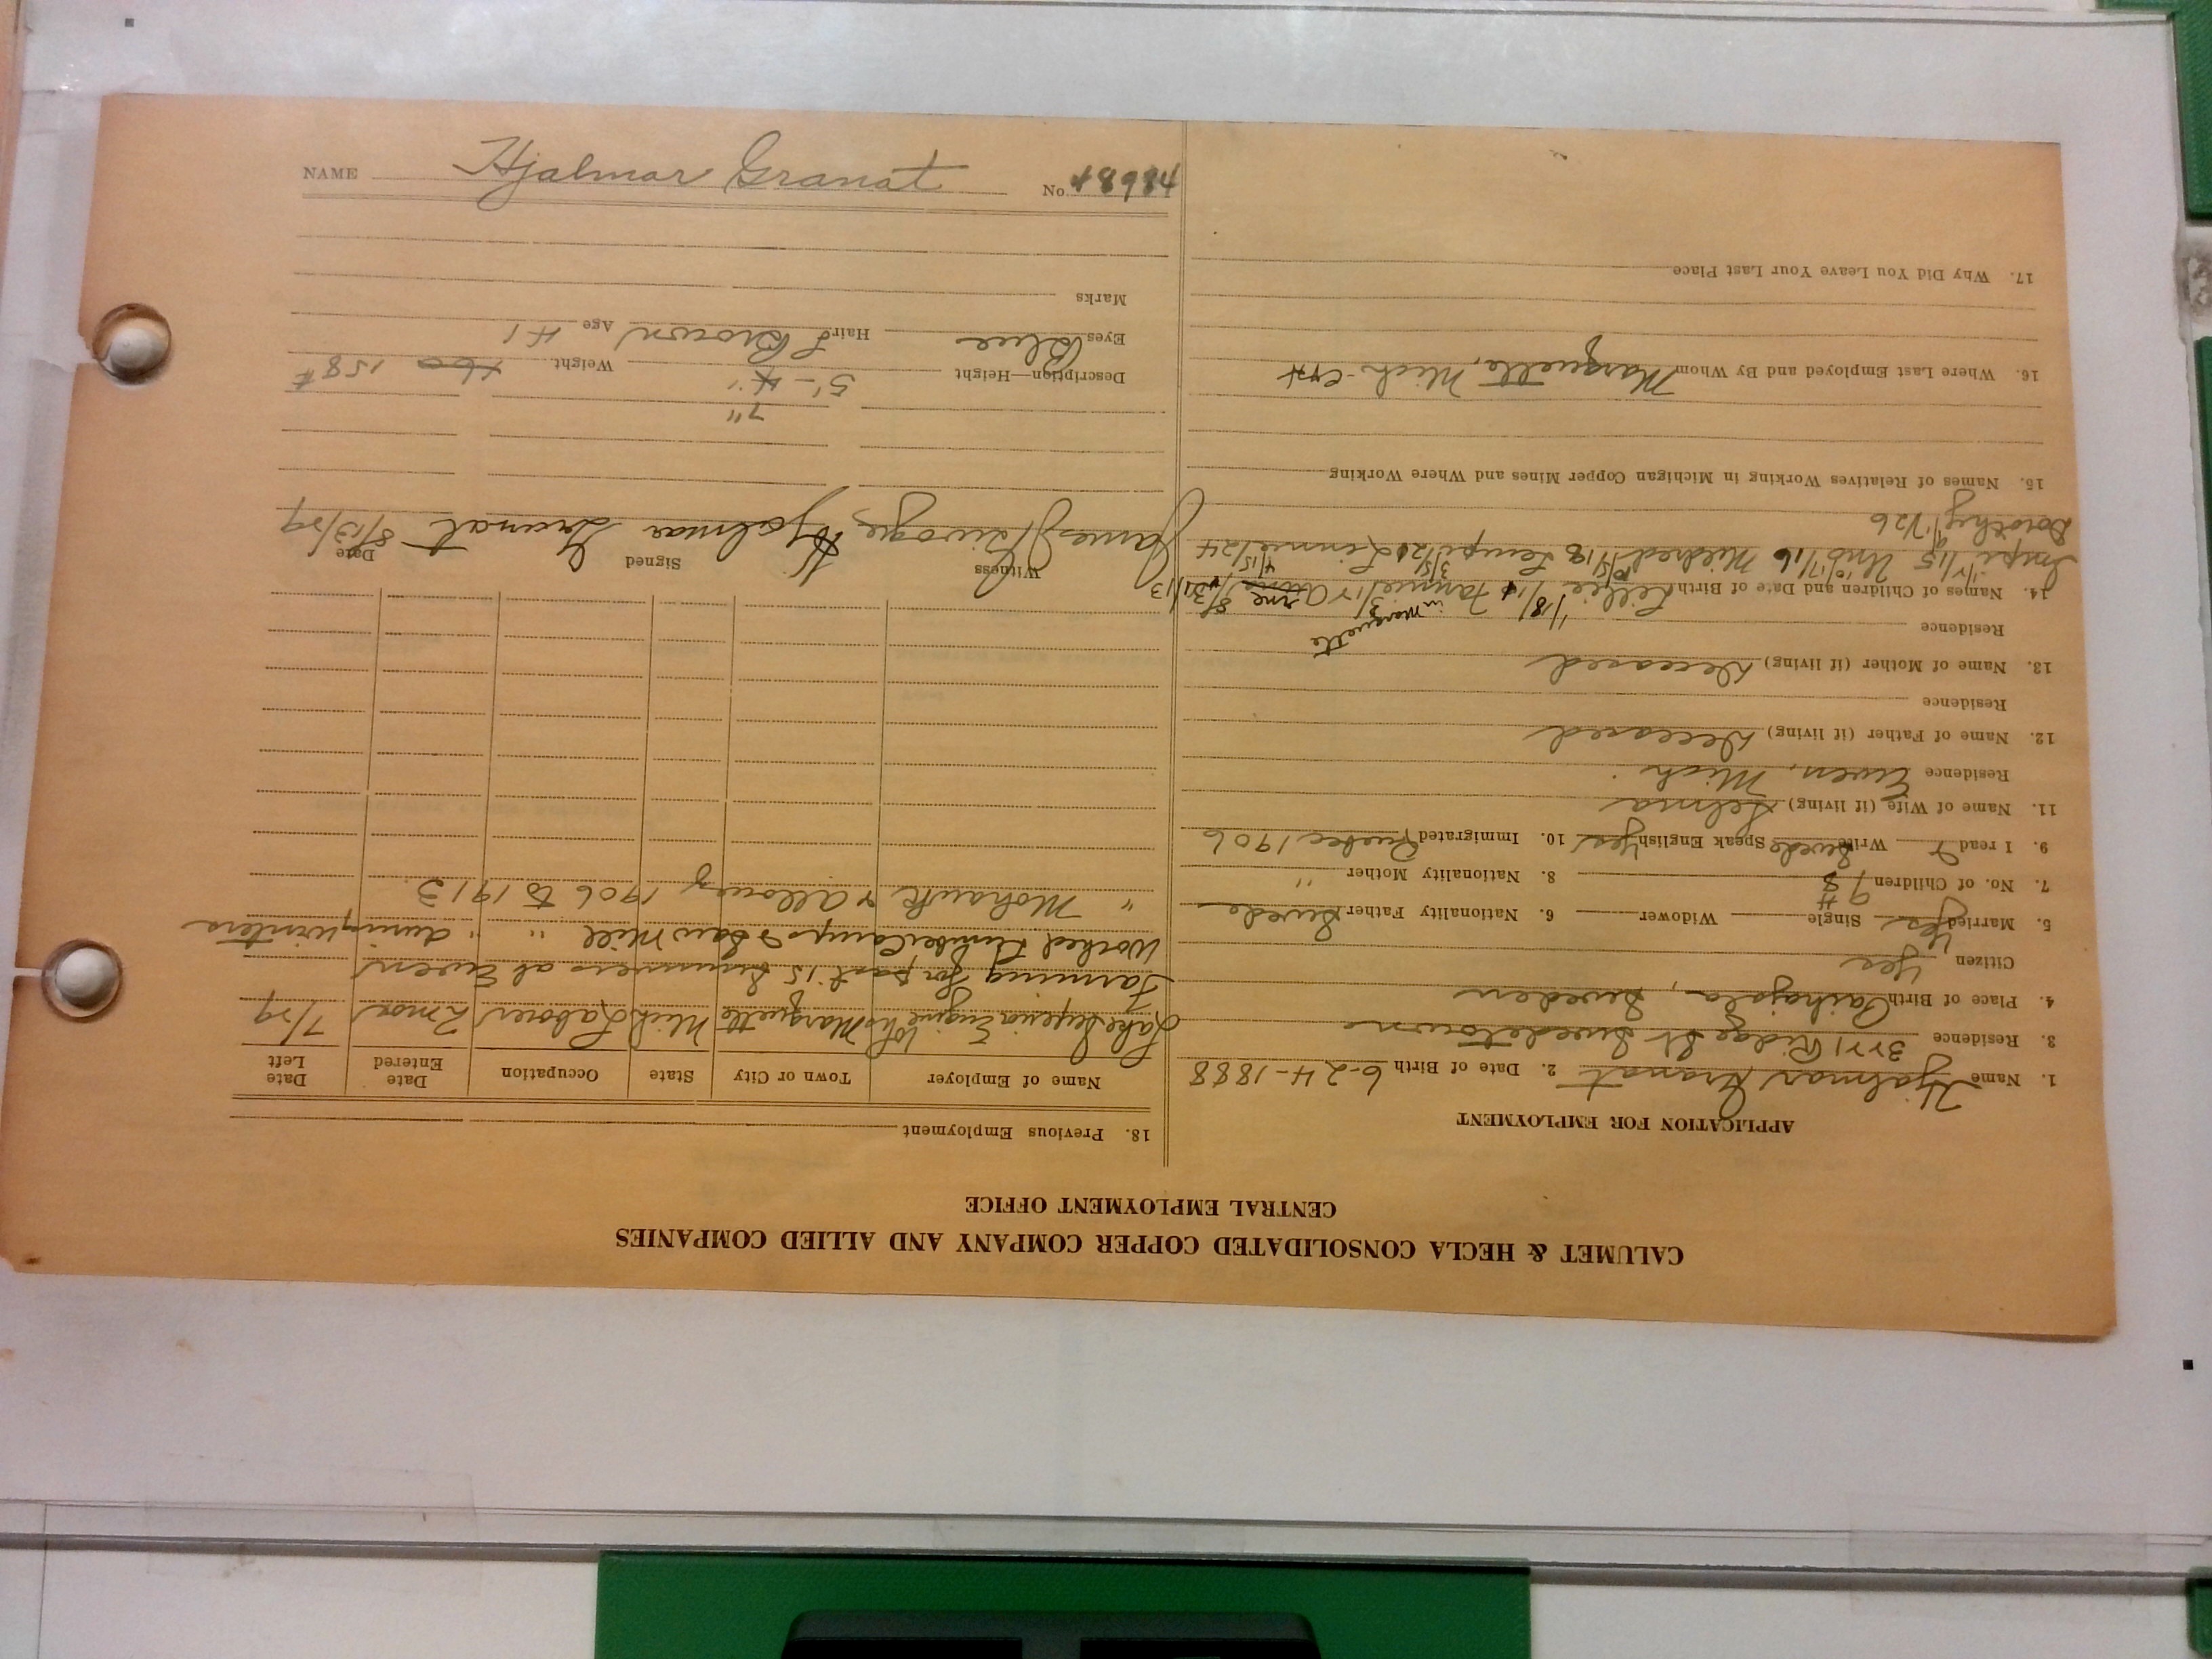 NAME Hjalmar Granat No. 48684
CALUMET & HECLA CONSOLIDATED COPPER COMPANY AND ALLIED COMPANIES
CENTRAL EMPLOYMENT OFFICE
APPLICATION FOR EMPLOYMENT
1. Name Hjalmar Granat 2. Date of Birth 6-24-1888
3. Residence Ridge St Swedetown
4. Place of Birth Sweden
Citizen Yes
5. Married Yes Single Widower 6. Nationality Father Swede
7. No. of Children 8. Nationality Mother "
9. I read & Write Swede Speak English Yes 10. Immigrated Quebec 1906
11. Name of Wife (if living) Selma
Residence Ewen, Mich.
12. Name of Father (if living) Deceased
Residence
13. Name of Mother (if living) Deceased
Residence in Marquette
14. Names of Children and Date of Birth Lillie Fannie 8/31/13
Impi 1/15 10/17/16 Mildred Lempi Linnie
Dorothy
15. Names of Relatives Working in Michigan Copper Mines and Where Working
16. Where Last Employed and By Whom Marquette, Mich.
17. Why Did You Leave Your Last Place
18. Previous Employment
Name of Employer Town or City State Occupation Date Entered Date Left
Lake Superior Engine Wks Marquette Mich Laborer 2 mos 7/29
Farming for past 15 Summers at Ewen
Worked Lumber Camps & Saw Mill " " during winters
" Mohawk & Allouez 1906 to 1913.
Witness Signed Date
James Hjalmar Granat 8/13/29
7"
Description—Height 5'-4" Weight 160 158#
Eyes Blue Hair L Brown Age 41
Marks